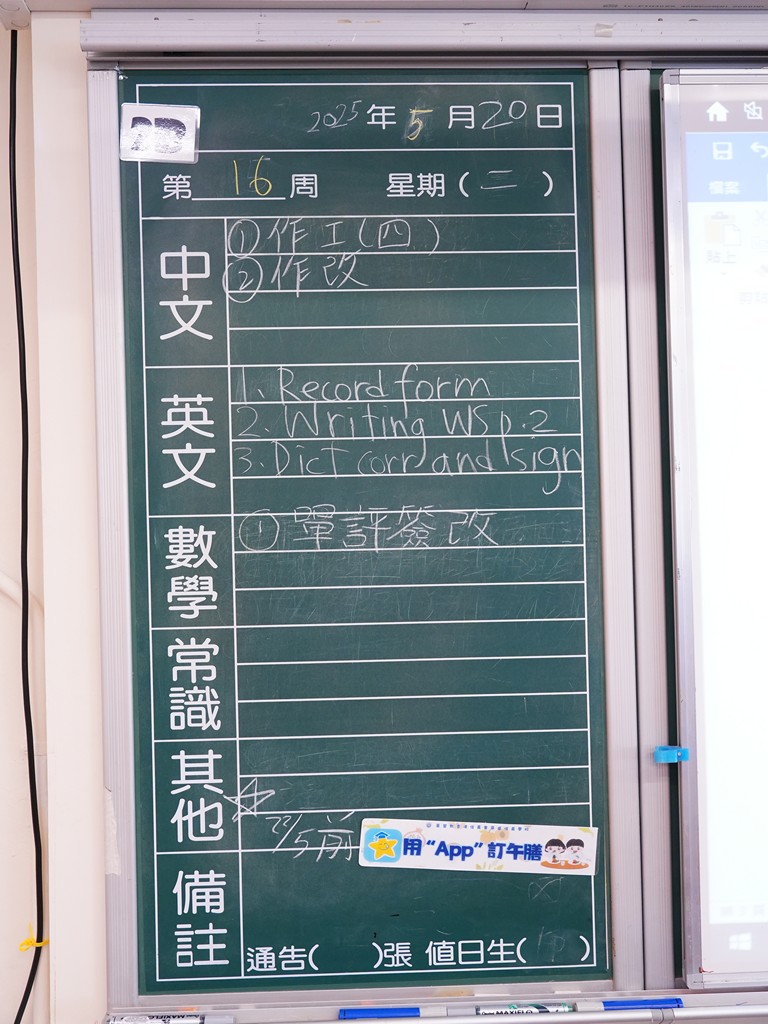 2025年5月20日
2D
第16周 星期(二)
中文
①作工(四)
②作改
英文
1. Record form
2. Writing WS p.2
3. Dict corr and sign
數學
①單評簽改
常識
其他
22/5前
用“App”訂午膳
備註
通告( )張 值日生( )
檔案
貼上